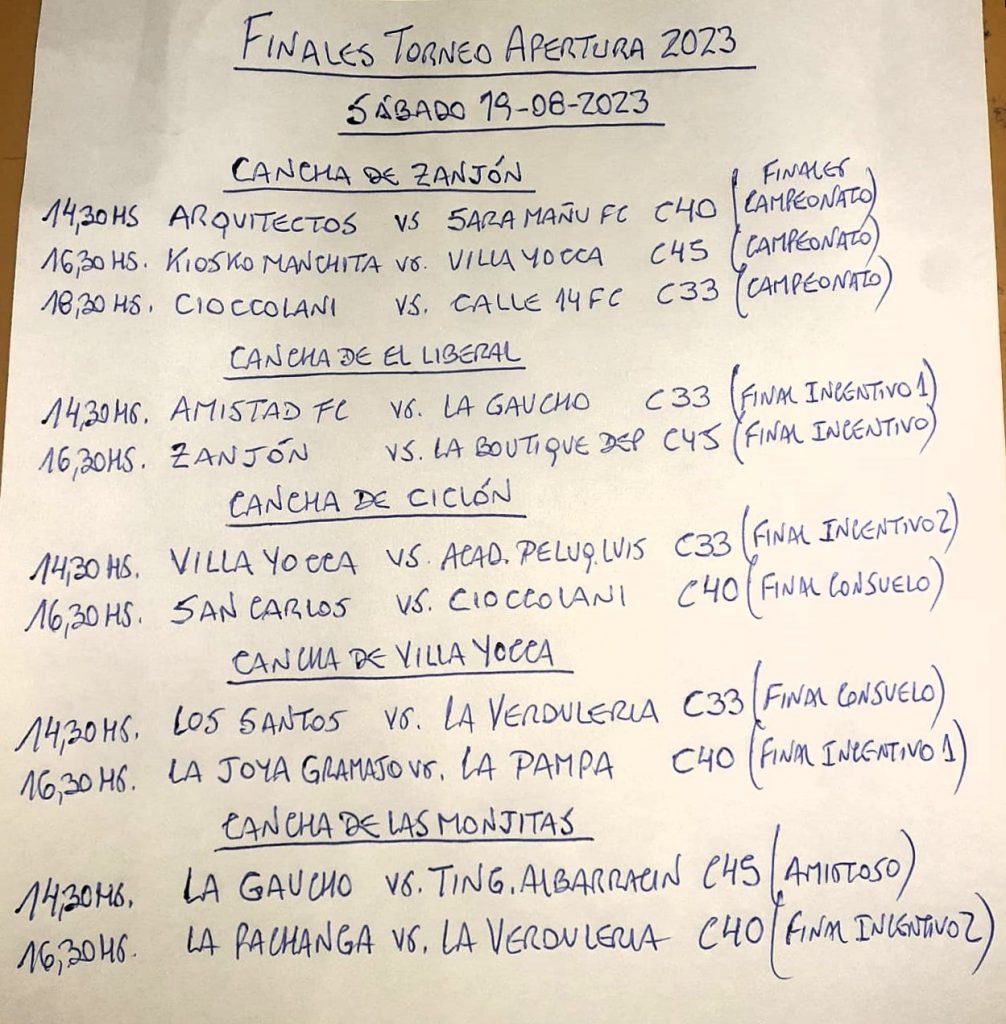 FINALES TORNEO APERTURA 2023
SÁBADO 19-08-2023
CANCHA DE ZANJÓN
14,30 HS ARQUITECTOS VS SARA MAÑU FC C40 (FINALES CAMPEONATO)
16,30 HS. KIOSKO MANCHITA VS. VILLA YOCCA C45 (CAMPEONATO)
18,30 HS. CIOCCOLANI VS. CALLE 14 FC C33 (CAMPEONATO)
CANCHA DE EL LIBERAL
14,30 HS. AMISTAD FC VS. LA GAUCHO C33 (FINAL INCENTIVO 1)
16,30 HS. ZANJÓN VS. LA BOUTIQUE DEP C45 (FINAL INCENTIVO)
CANCHA DE CICLÓN
14,30 HS. VILLA YOCCA VS. ACAD. PELUQ. LUIS C33 (FINAL INCENTIVO 2)
16,30 HS. SAN CARLOS VS. CIOCCOLANI C40 (FINAL CONSUELO)
CANCHA DE VILLA YOCCA
14,30 HS. LOS SANTOS VS. LA VERDULERIA C33 (FINAL CONSUELO)
16,30 HS. LA JOYA GRAMAJO VS. LA PAMPA C40 (FINAL INCENTIVO 1)
CANCHA DE LAS MONJITAS
14,30 HS. LA GAUCHO VS. TING. ALBARRACIN C45 (AMISTOSO)
16,30 HS. LA PACHANGA VS. LA VERDULERIA C40 (FINAL INCENTIVO 2)